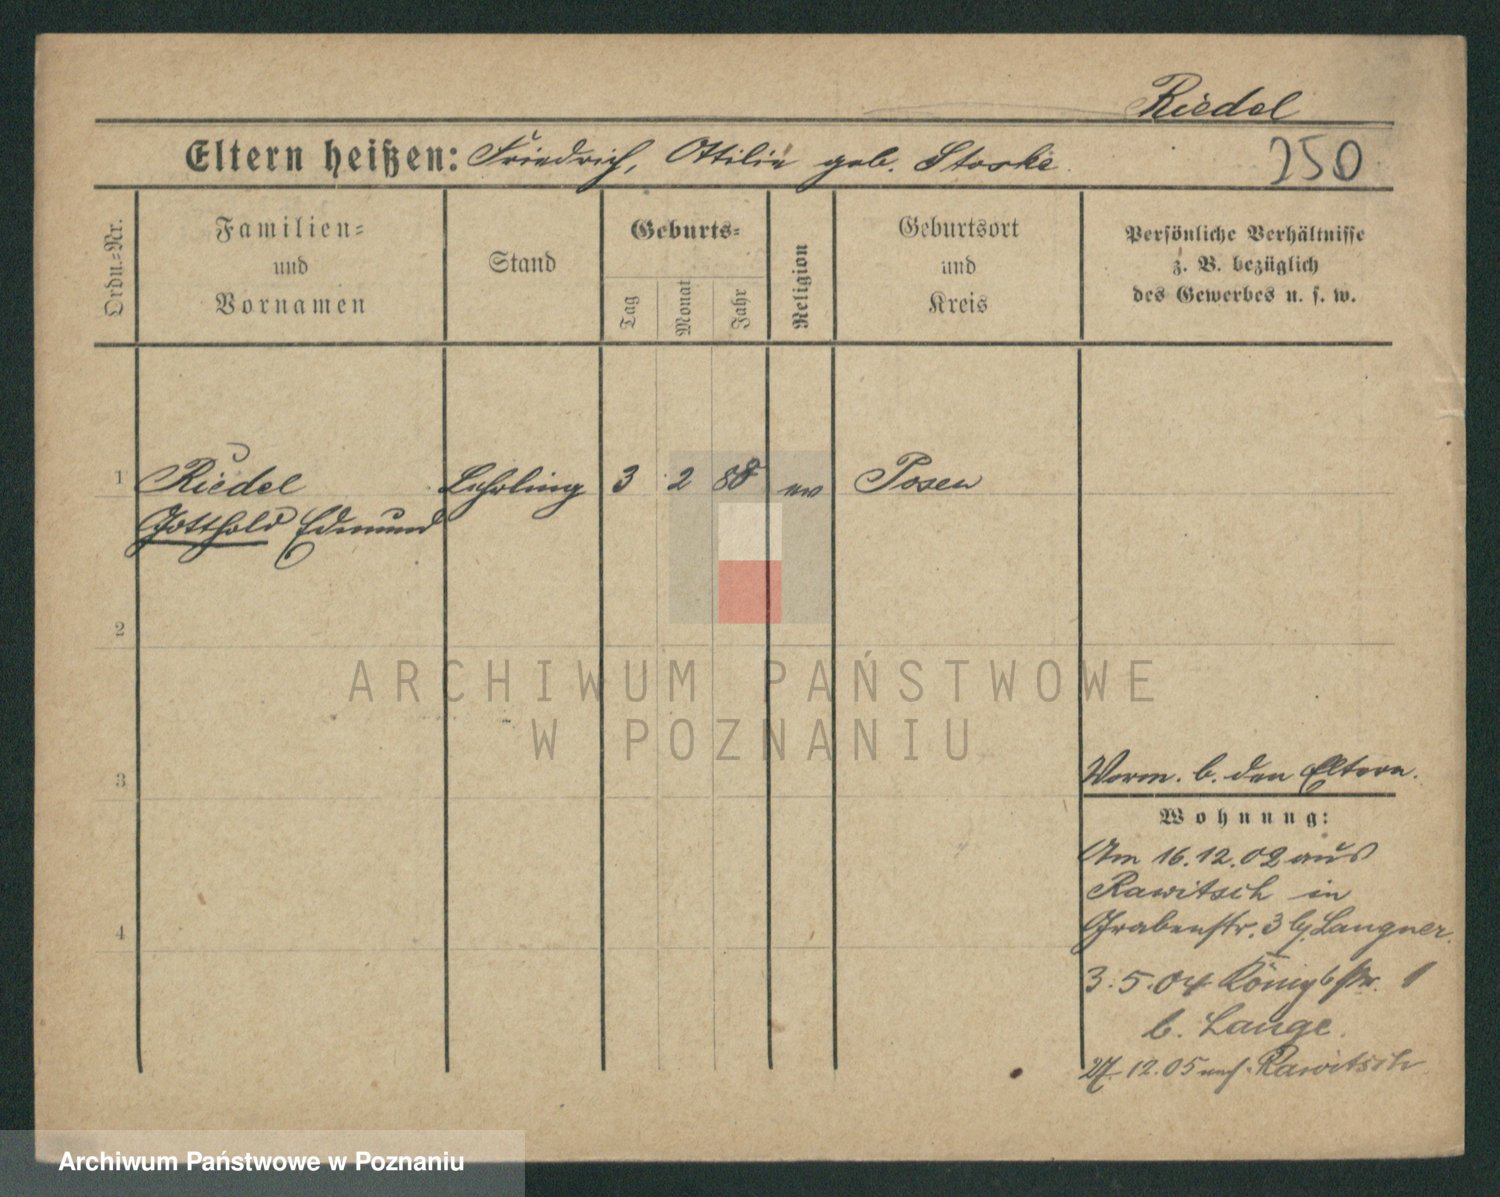 Riedel
Eltern heißen: Friedrich, Ottilie geb. Stoske
250
Ordn.-Nr.
Familien-
und
Vornamen
Stand
Geburts-
Tag
Monat
Jahr
Religion
Geburtsort
und
Kreis
Persönliche Verhältnisse
z. B. bezüglich
des Gewerbes u. s. w.
1 Riedel Lehrling 3 2 88 ev Posen
Gotthold Edmund
2
3
4
ARCHIWUM PAŃSTWOWE
W POZNANIU
Worm. b. den Eltern.
Wohnung:
Am 16.12.02 aus
Rawitsch in
Grabenstr. 3 b. Langner.
3.5.04 Königsstr. 1
b. Lange.
27.12.05 nach Rawitsch
Archiwum Państwowe w Poznaniu